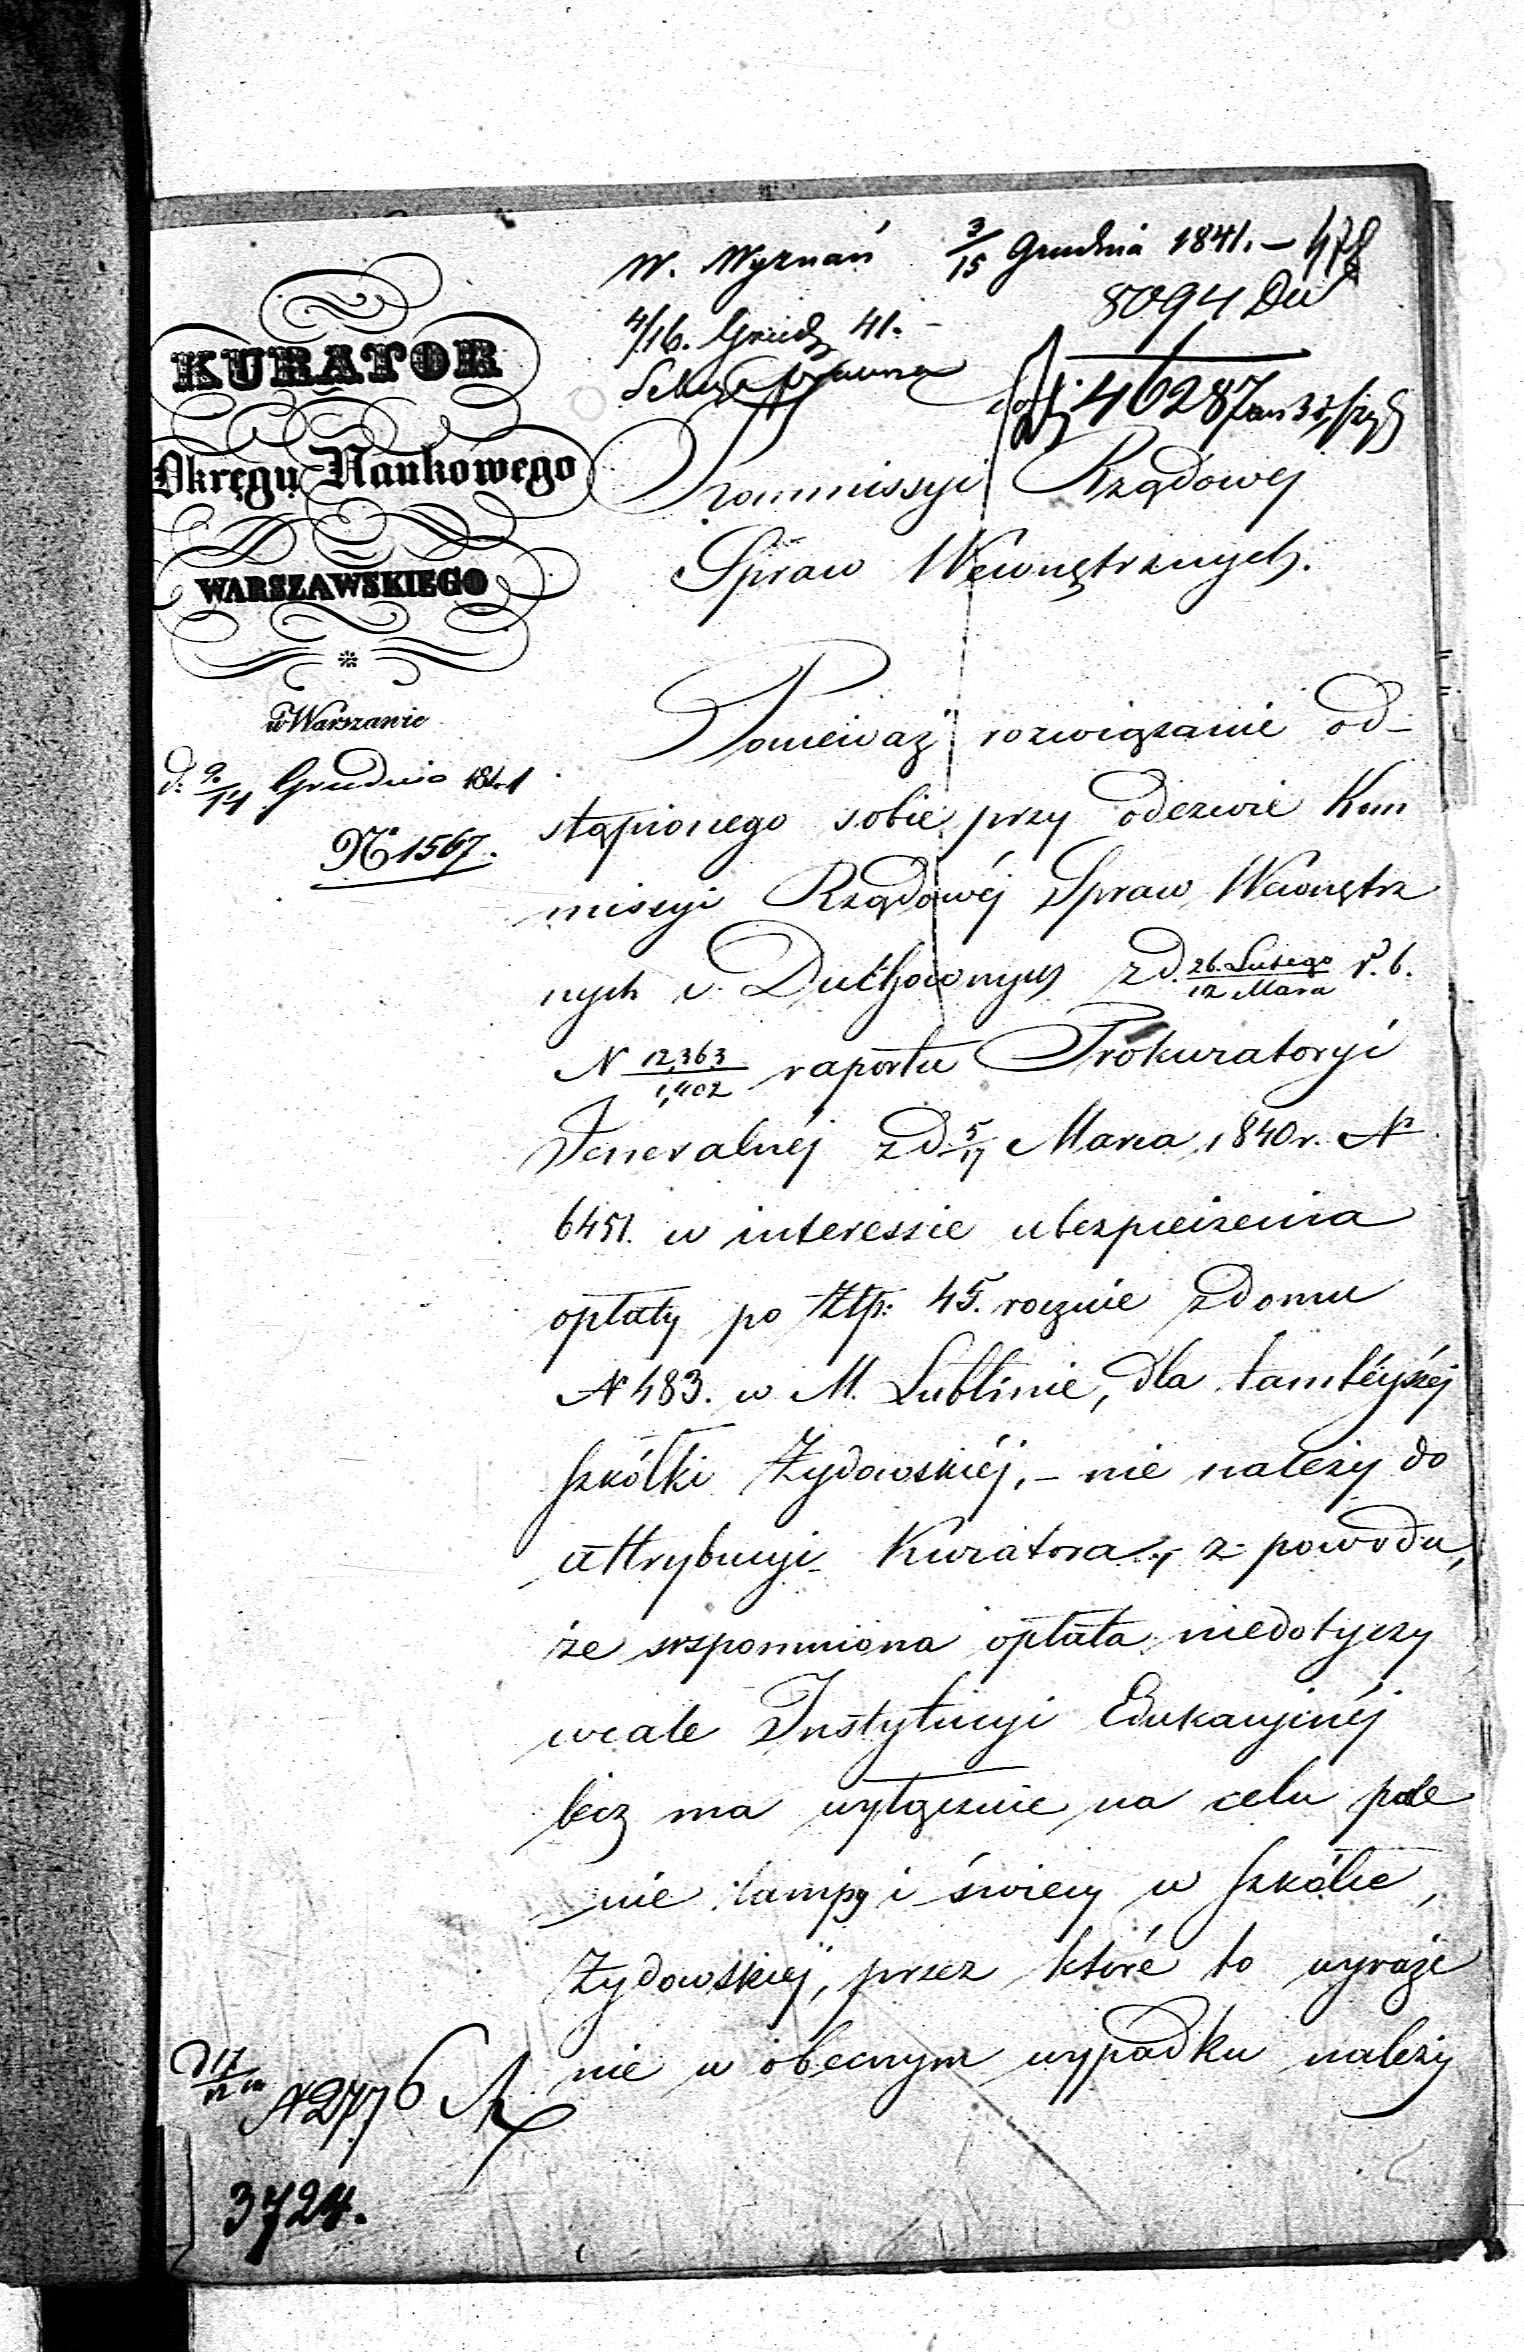 W. Wyznań 3/15 Grudnia 1841. – 478
8094 Du
4/16. Grudz 41. –
46287
KURATOR
Okręgu Naukowego
WARSZAWSKIEGO
w Warszawie
d. 2/14 Grudnia 1841
No 1567.
Kommissyi Rządowej
Spraw Wewnętrznych.
Ponieważ rozwiązanie od-
stąpionego sobie przy odezwie Kom
missyi Rządowéj Spraw Wewnętrz
nych i Duchownych z d. 26. Lutego/12 Marca r. b.
N 12,363/1,402 raportu Prokuratoryi
Jeneralnéj z d. 5/17 Marca 1840 r. No
6451. w interessie ubezpieczenia
opłaty po Złp: 45. rocznie z domu
N 483. w M. Lublinie, dla tamtéjszéj
szkółki Żydowskiéj, – nie należy do
attrybucyi Kuratora, z powodu,
że wspomniona opłata niedotyczy
wcale Instytucyi Edukacyjnéj
lecz ma wyłącznie na celu pale
nie lampy i świecy w szkółce
Żydowskiéj, przez które to wyraże
nie w obecnym wypadku należy
d 17/12 N 2776
3724.